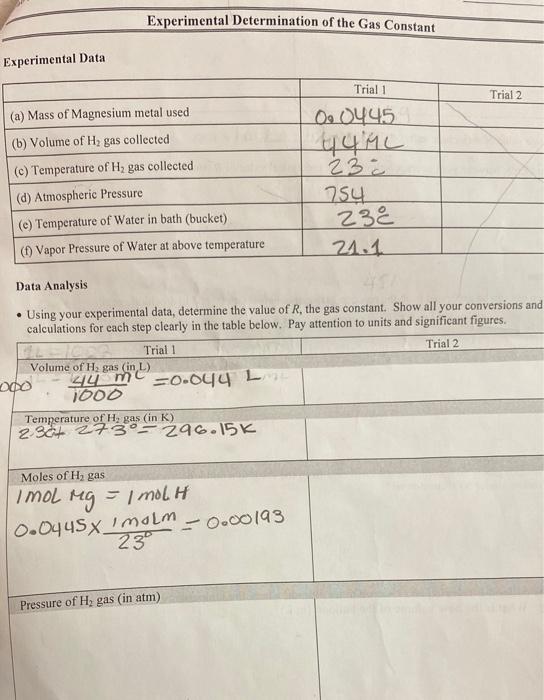 Experimental Determination of the Gas Constant
Experimental Data
Trial 1 Trial 2
(a) Mass of Magnesium metal used 0.0445
(b) Volume of H₂ gas collected 44 mL
(c) Temperature of H₂ gas collected 23
(d) Atmospheric Pressure 754
(e) Temperature of Water in bath (bucket) 23°C
(f) Vapor Pressure of Water at above temperature 21.1
Data Analysis
• Using your experimental data, determine the value of R, the gas constant. Show all your conversions and
calculations for each step clearly in the table below. Pay attention to units and significant figures.
Trial 1 Trial 2
Volume of H₂ gas (in L)
44 mL = 0.044 L
1000
Temperature of H₂ gas (in K)
23°+ 273° = 296.15K
Moles of H₂ gas
1 MOL Mg = 1 mol H
0.0445 x 1 molm = 0.00193
23°
Pressure of H₂ gas (in atm)